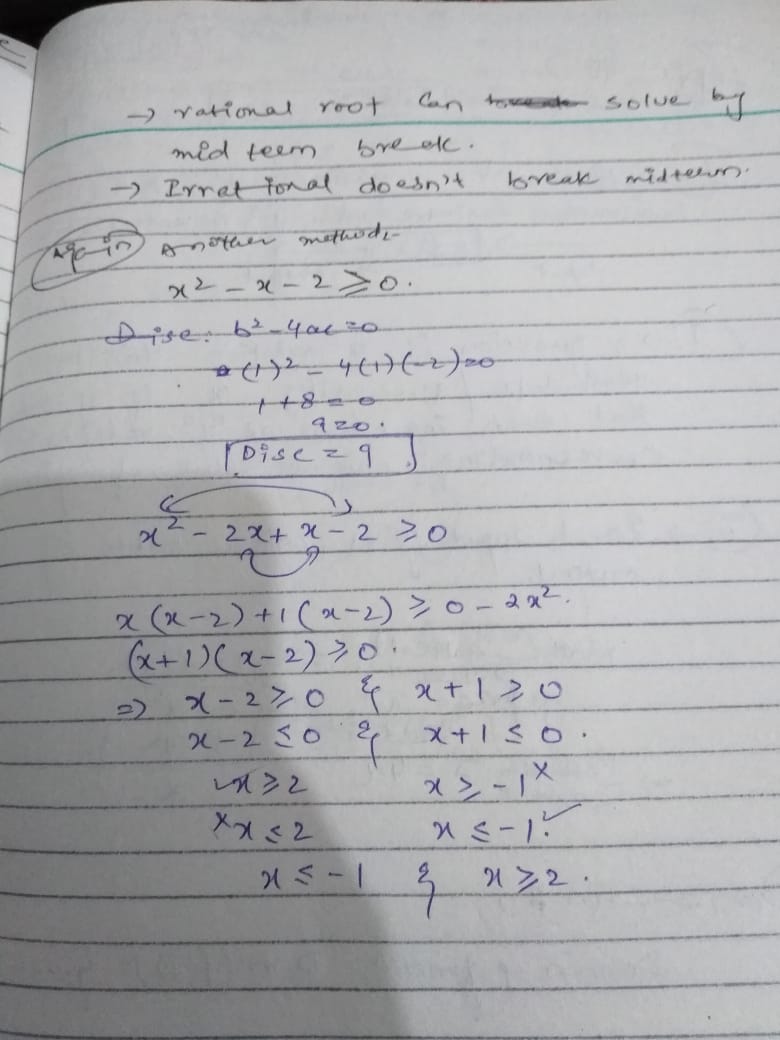 → rational root can solve by
mid teem break.
→ Irrational doesn't break midteerm.
Again Another method:-
x² - x - 2 ⩾ 0.
Disc: b² - 4ac = 0
(1)² - 4(1)(-2) = 0
1 + 8 = 0
9 = 0.
Disc = 9
x² - 2x + x - 2 ⩾ 0
x(x-2) + 1(x-2) ⩾ 0 - 2x².
(x+1)(x-2) ⩾ 0.
=> x - 2 ⩾ 0 & x + 1 ⩾ 0
x - 2 ≤ 0 & x + 1 ≤ 0.
✓x ⩾ 2 x ⩾ -1 ×
×x ≤ 2 x ≤ -1. ✓
x ≤ -1 & x ⩾ 2.